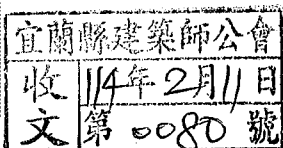 宜蘭縣建築師公會
收文
114年2月11日
第0080號